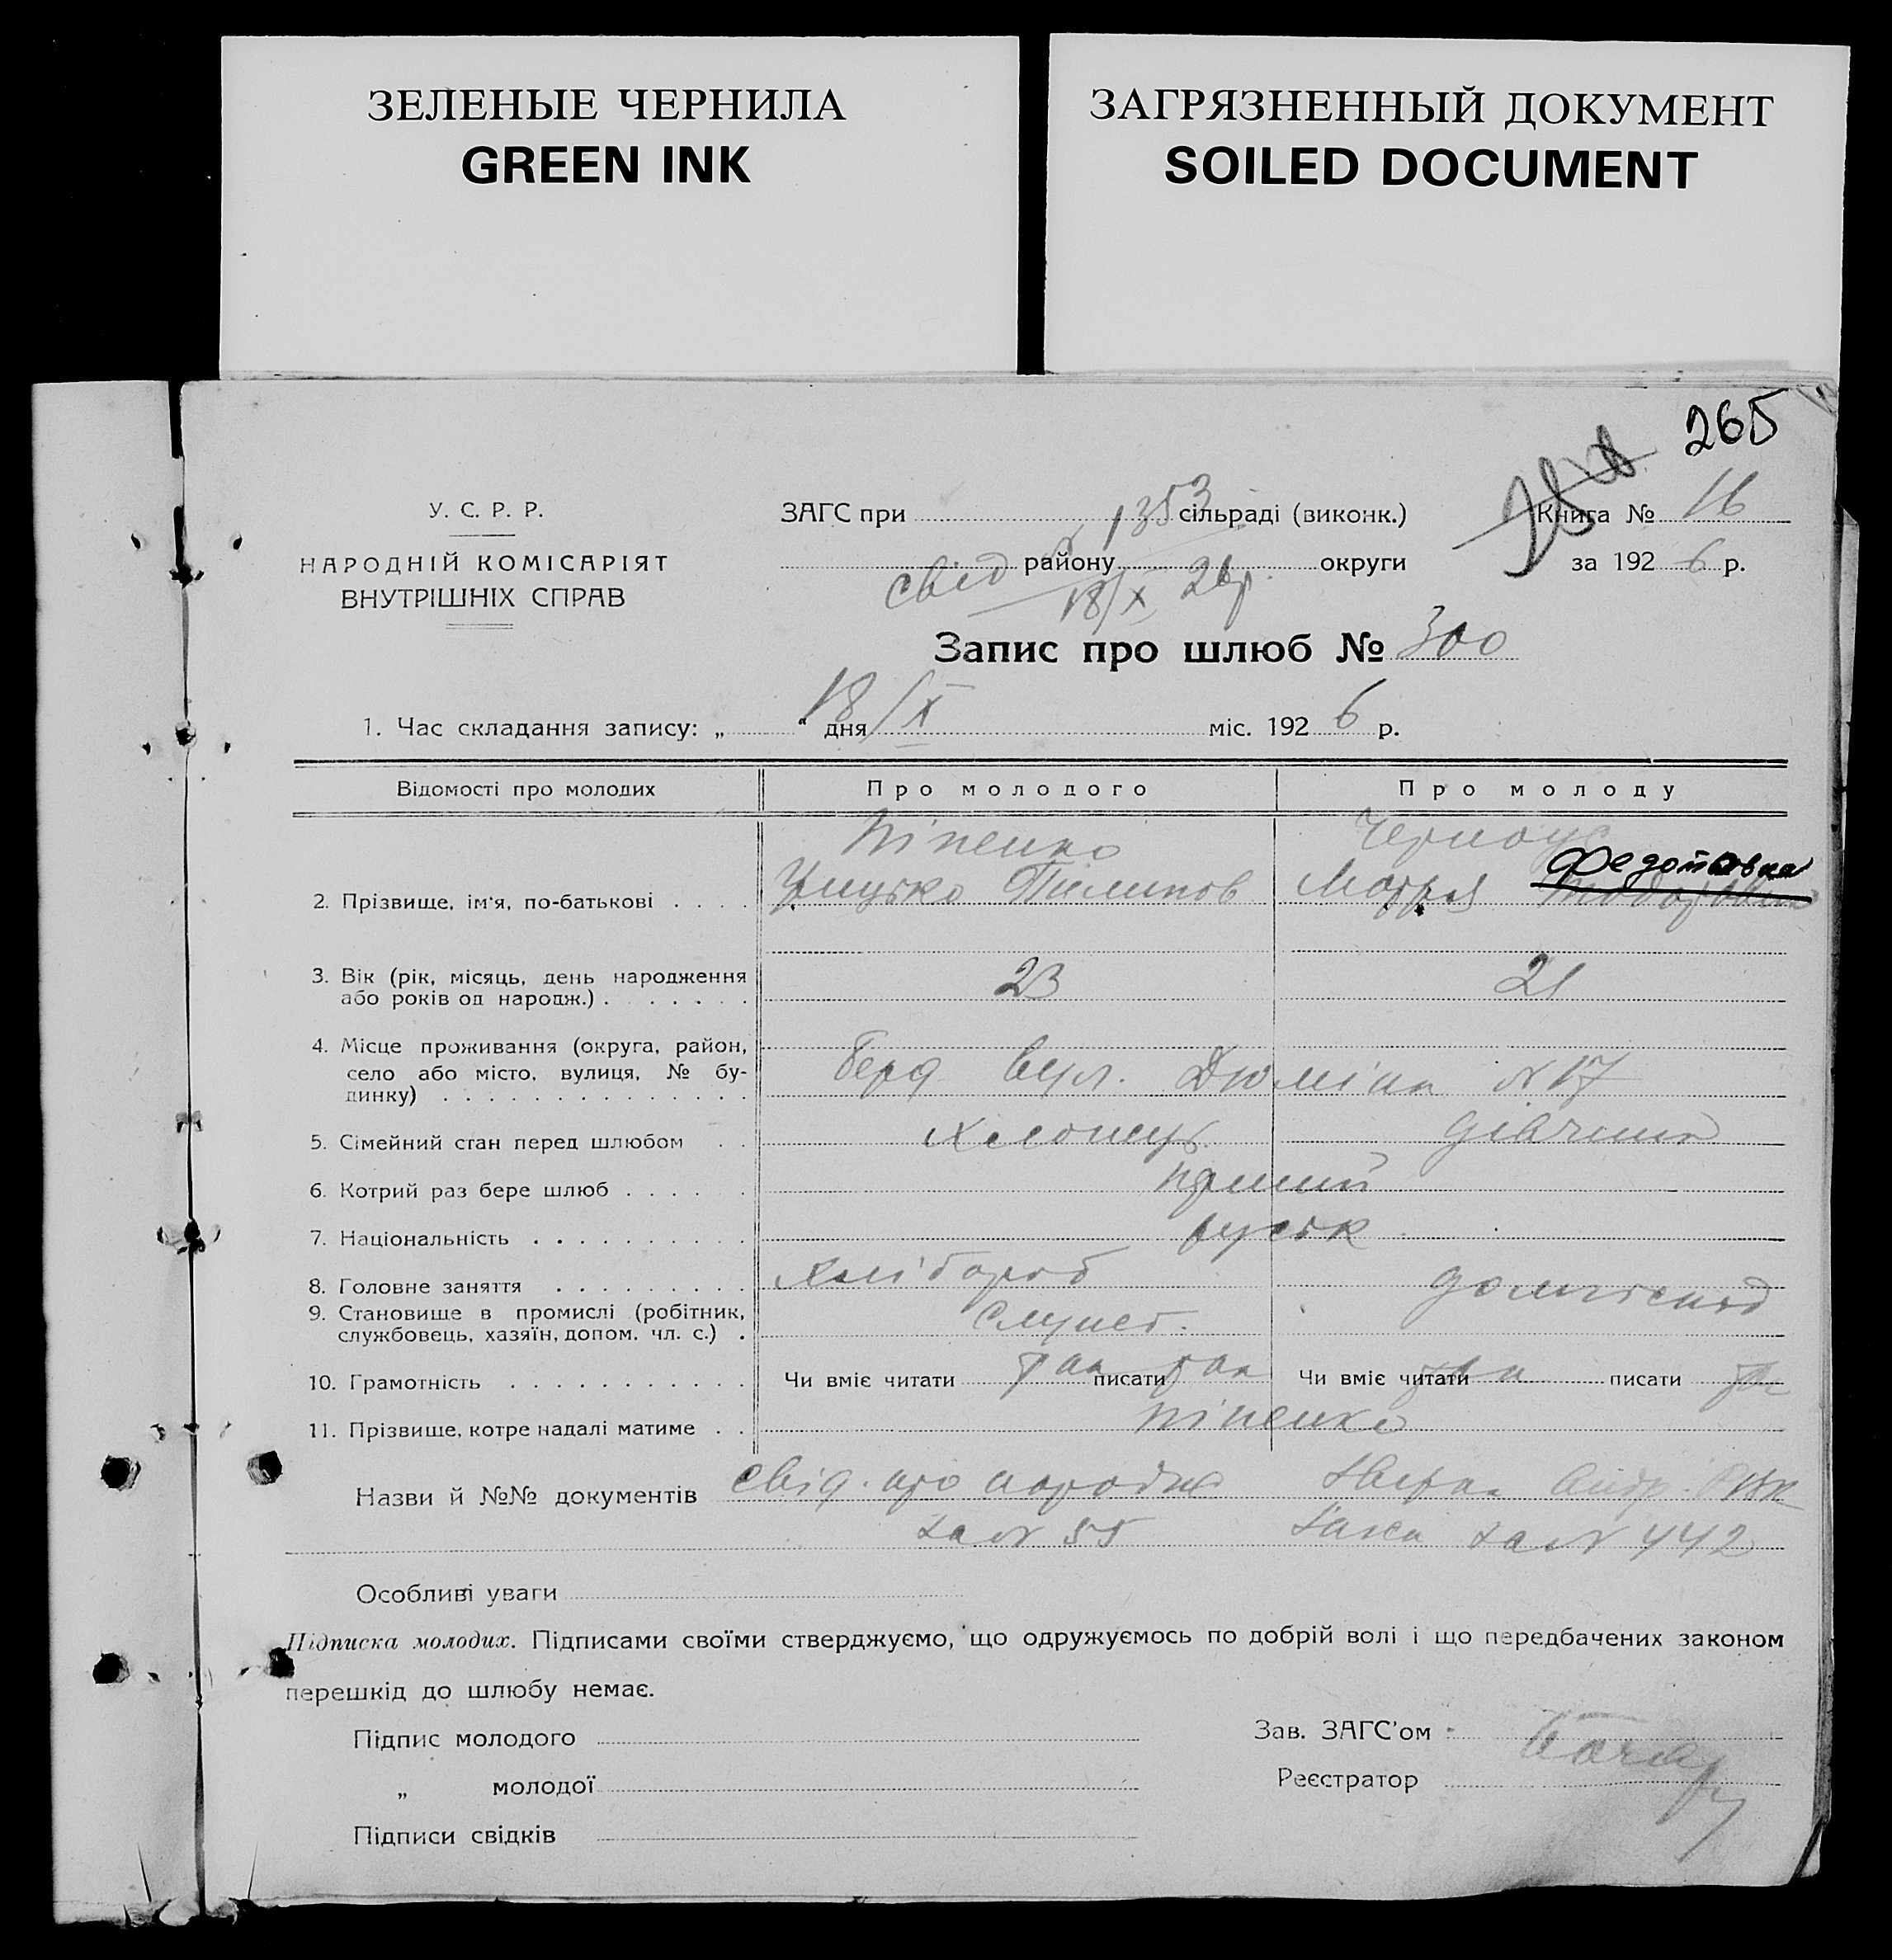 ЗЕЛЕНЫЕ ЧЕРНИЛА
GREEN INK
ЗАГРЯЗНЕННЫЙ ДОКУМЕНТ
SOILED DOCUMENT
265
У. С. Р. Р.
НАРОДНІЙ КОМІСАРІЯТ
ВНУТРІШНІХ СПРАВ
ЗАГС при 1353 сільраді (виконк.)
свід району округи
18/X 26р.
Книга № 16
за 1926 р.
Запис про шлюб № 300
1. Час складання запису: „ 18 “ дня /X міс. 1926 р.
Відомості про молодих Про молодого Про молоду
Піпенко Черноус
Федотовна
2. Прізвище, ім'я, по-батькові . . . . Грицько Пилипов Мотря Тодоровна
3. Вік (рік, місяць, день народження
або років од народж.) . . . . . . . 23 21
4. Місце проживання (округа, район,
село або місто, вулиця, № бу-
динку) . . . . . . . . . . . . . . Берд вул. Дюміна №17
5. Сімейний стан перед шлюбом . . хлопець дівчина
6. Котрий раз бере шлюб . . . . . перший
7. Національність . . . . . . . . . . руськ
8. Головне заняття . . . . . . . . . хлібороб домгоспод
9. Становище в промислі (робітник,
службовець, хазяїн, допом. чл. с.) .
10. Грамотність . . . . . . . . . . . Чи вміє читати так писати так Чи вміє читати так писати так
11. Прізвище, котре надалі матиме . . Піпенко
Назви й №№ документів свід. про народж РВК
за № 55 за № 442
Особливі уваги
Підписка молодих. Підписами своїми стверджуємо, що одружуємось по добрій волі і що передбачених законом
перешкід до шлюбу немає.
Підпис молодого
„ молодої
Підписи свідків
Зав. ЗАГС'ом
Реєстратор